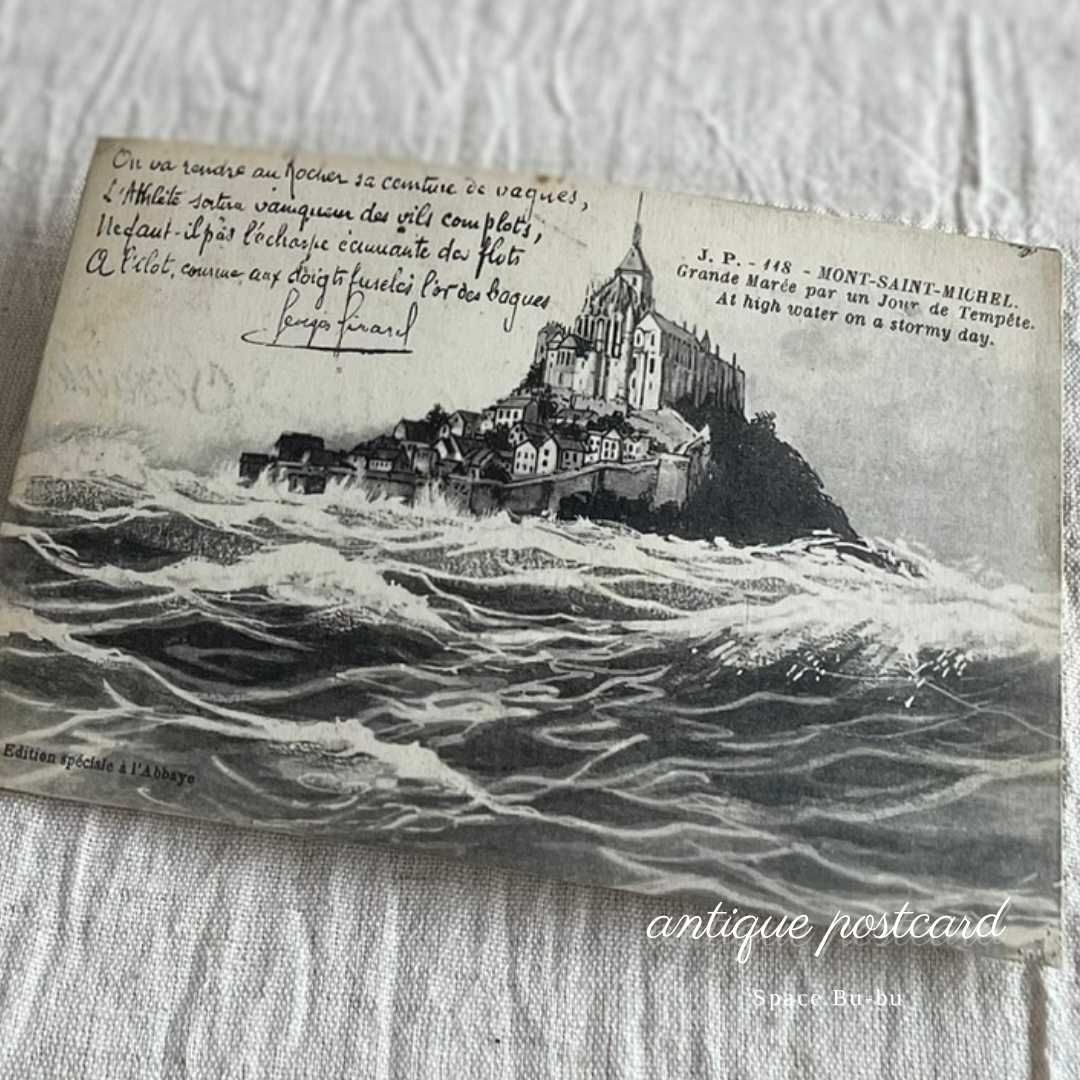 On va rendre au Rocher sa ceinture de vagues,
L'Athlète sortira vainqueur des vils complots;
Ne faut-il pas l'écharpe écumante des flots
A l'ilot, comme aux doigts fuselés l'or des bagues
Georges Girard
J. P. - 118 - MONT-SAINT-MICHEL.
Grande Marée par un Jour de Tempête.
At high water on a stormy day.
Edition spéciale à l'Abbaye
antique postcard
Space Bu-bu